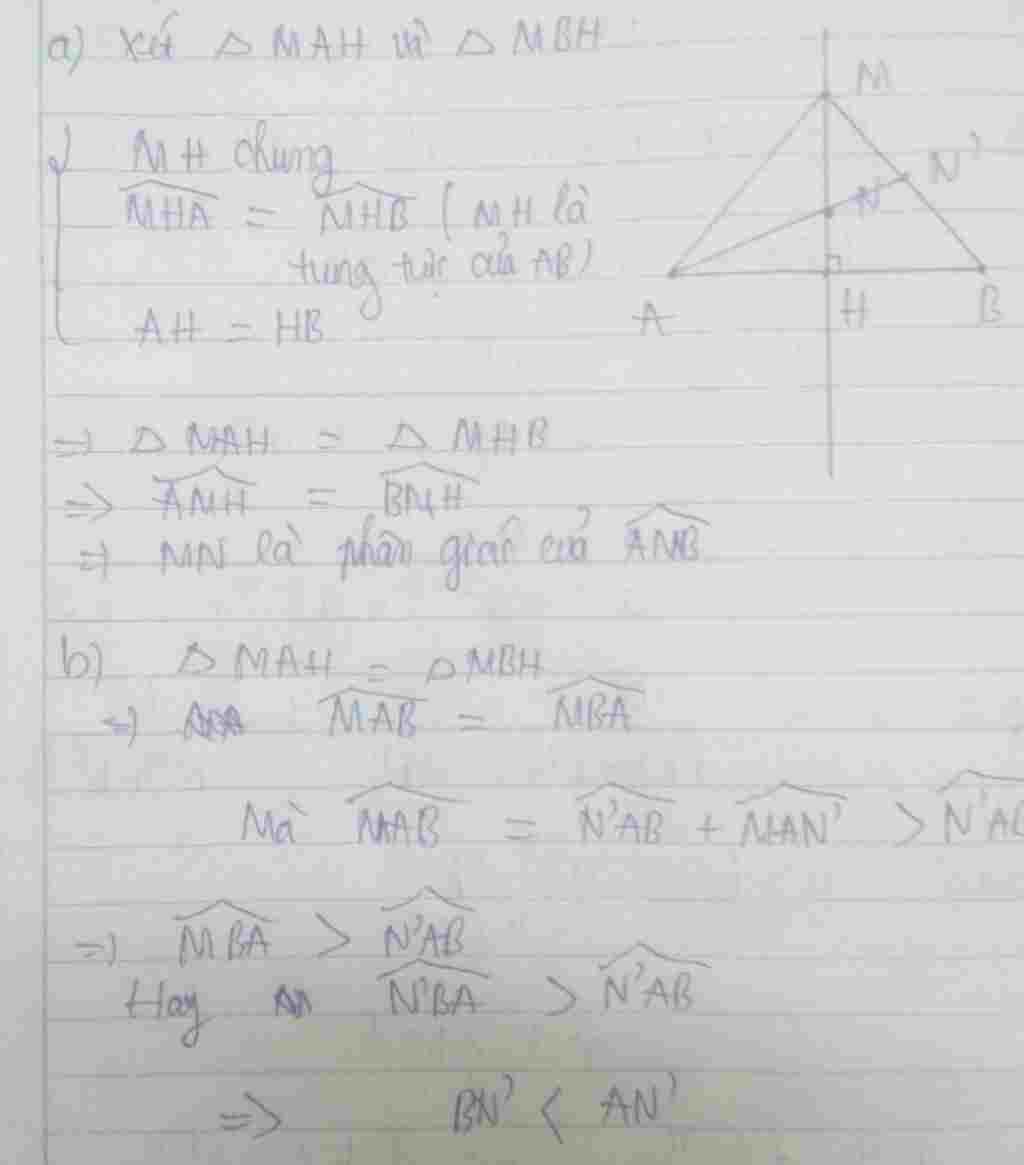 a) Xét △ MAH và △ MBH
MH chung
MHA = MHB ( MH là
trung trực của AB)
AH = HB
=> △ MAH = △ MHB
=> AMH = BMH
=> MN là phân giác của AMB
b) △ MAH = △ MBH
=> MAB = MBA
Mà MAB = N'AB + MAN' > N'AB
=> MBA > N'AB
Hay N'BA > N'AB
=> BN' < AN'
M
N'
N
A
H
B